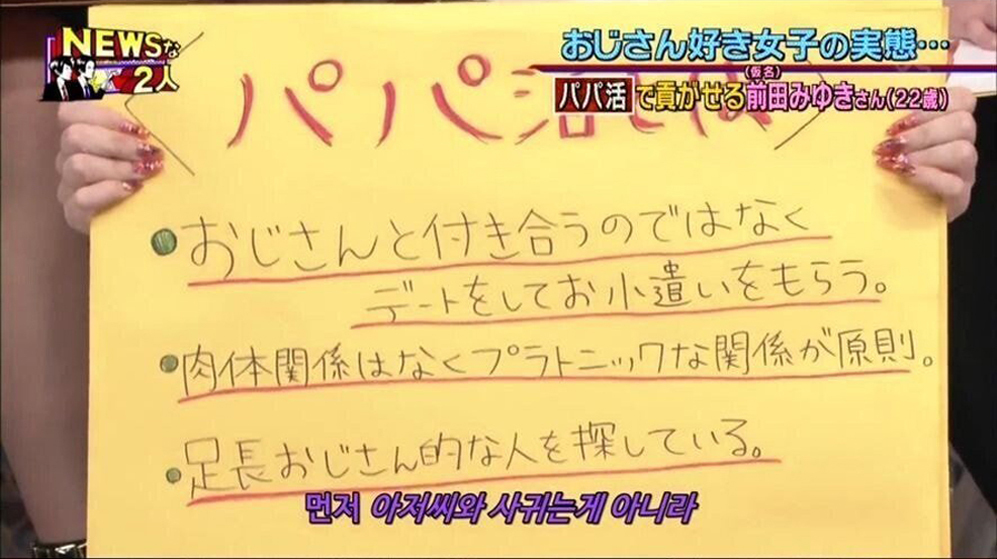 NEWSな
2人
おじさん好き女子の実態…
(仮名)
パパ活で貢がせる前田みゆきさん(22歳)
パパ活とは
●おじさんと付き合うのではなく
デートをしてお小遣いをもらう。
●肉体関係はなくプラトニックな関係が原則。
●足長おじさん的な人を探している。
먼저 아저씨와 사귀는게 아니라